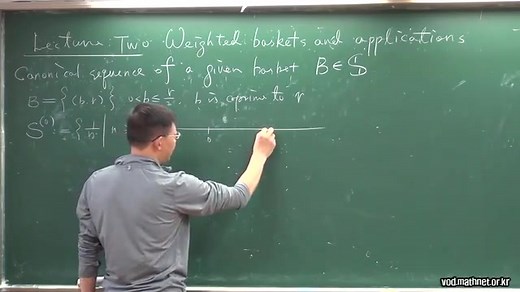 Lecture Two Weighted baskets and applications
Canonical sequence of a given basket B ∈ S
B = { (b, r) | 0 < b ≤ r/2, b is coprime to r
S⁽⁰⁾ := { 1/n | n
0
vod.mathnet.or.kr